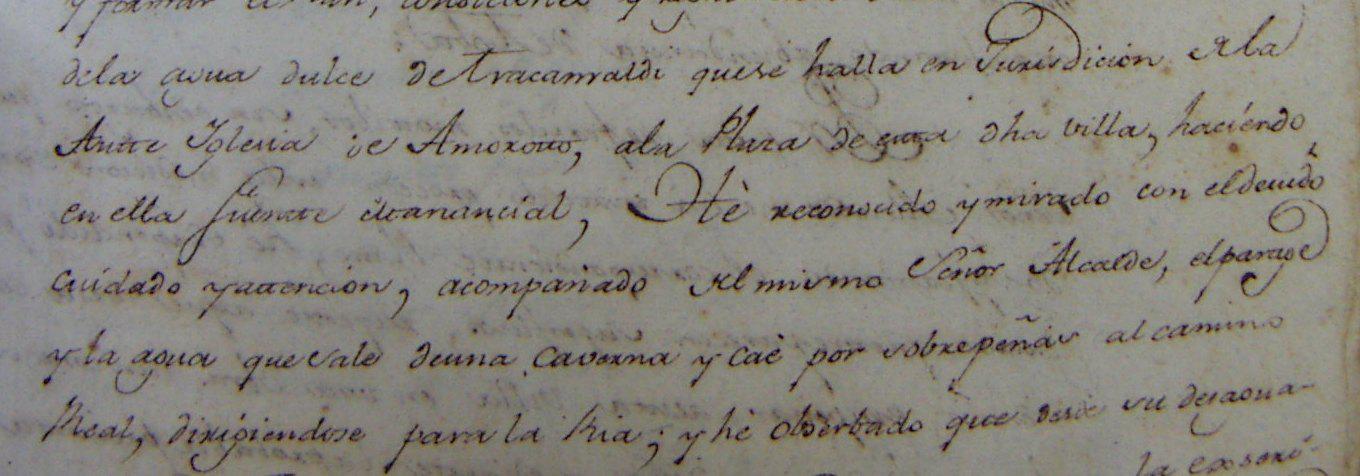 y formar el
dela agua dulce de Tracamaldi quese halla en Jurisdicion de la
Antte Iglesia de Amorotto, ala Plaza de esta dha villa, haciendo
en ella fuente Manancial, Hè reconocido y mirado con el devido
cuidado y attencion, acompañado del mismo Señor Alcalde, el parage
y la agua que sale de una Caverna y caè por sobrepeñas al camino
Real, dirigiendose para la Ria; y hè observado que desde su desagua-
la